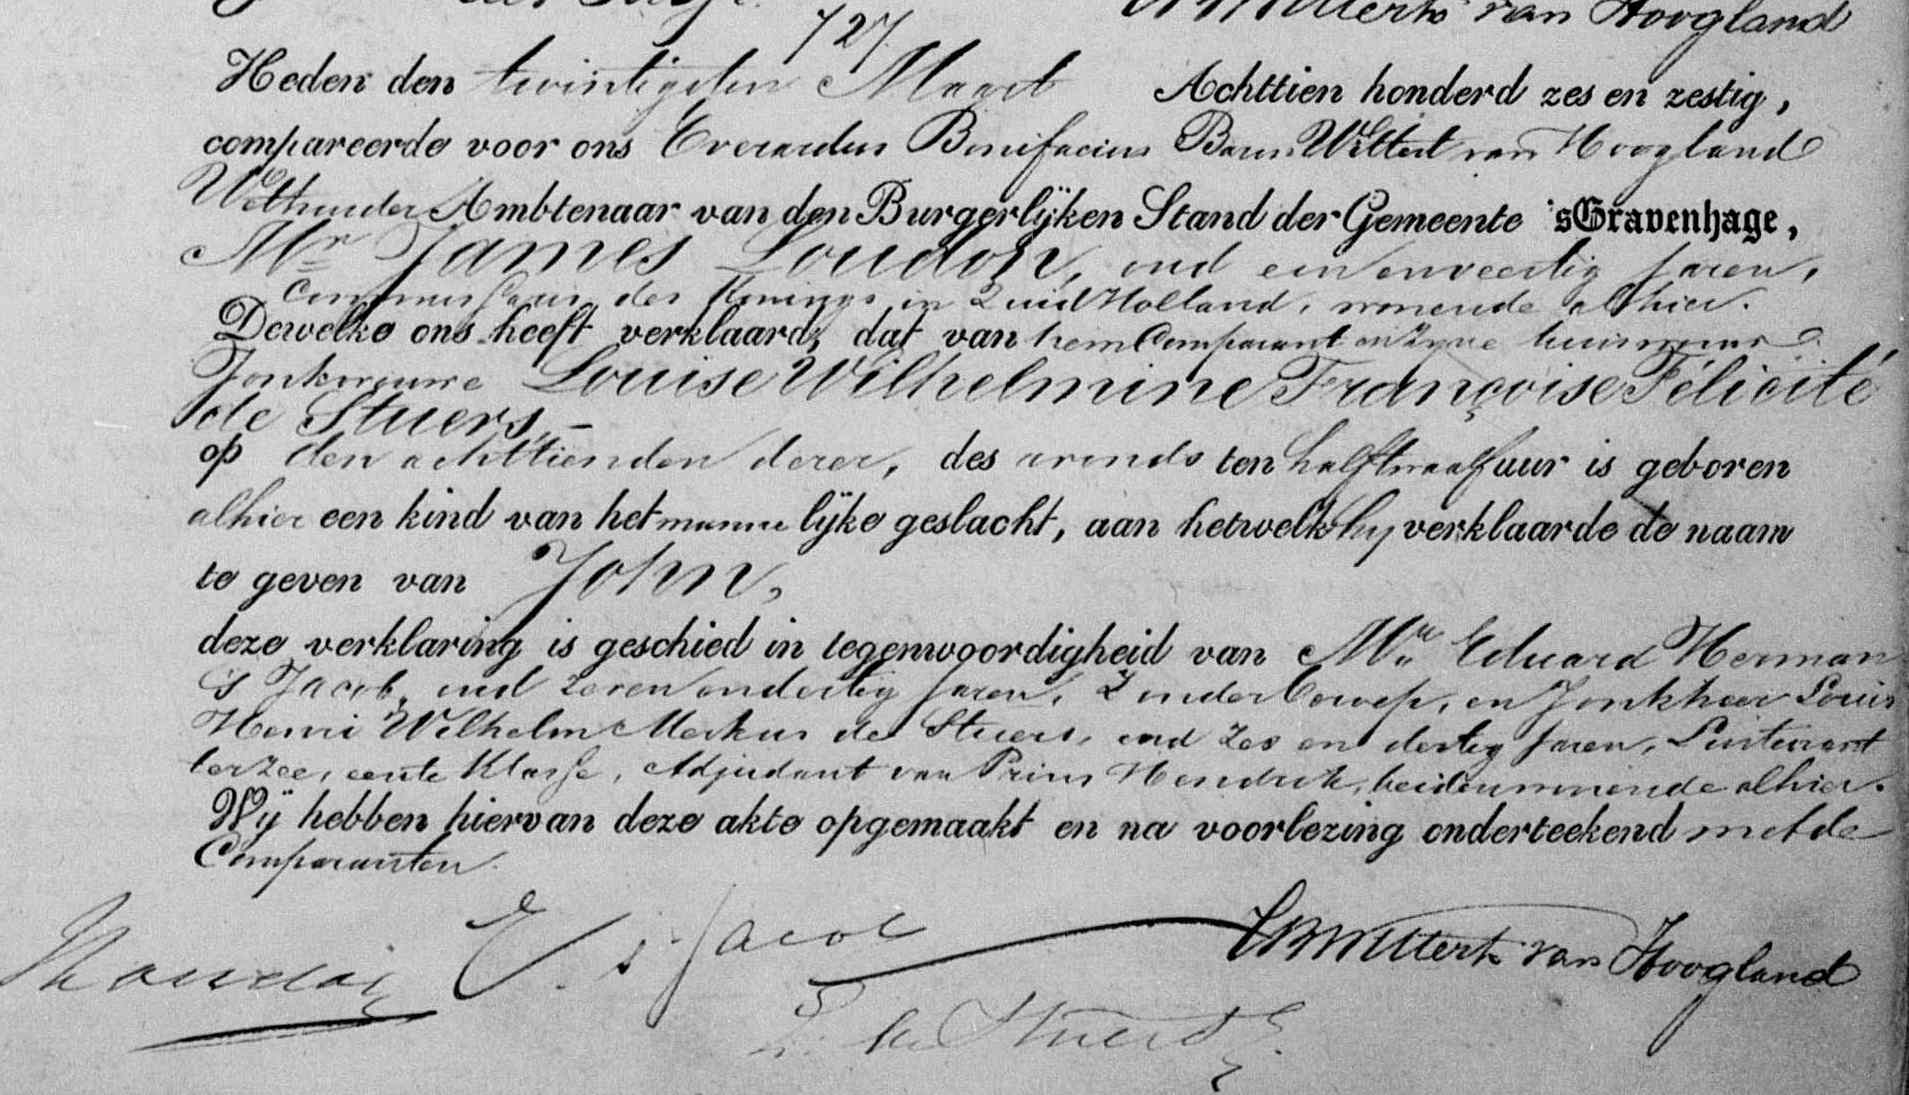 van Hoogland
727.
Heden den twintigsten Maart Achttien honderd zes en zestig,
compareerde voor ons Everardus Bonifacius Baron Wittert van Hoogland
Wethouder Ambtenaar van den Burgerlijken Stand der Gemeente 'sGravenhage,
Mr James Loudon, oud een en veertig jaren,
Commissaris des Konings in Zuid Holland, wonende alhier.
Dewelke ons heeft verklaard, dat van hem Comparant en zijne huisvrouw
Jonkvrouwe Louise Wilhelmine Françoise Félicité
de Stuers,-
op den achttienden dezer, des avonds ten half twaalf uur is geboren
alhier een kind van het mannelijke geslacht, aan hetwelk hij verklaarde de naam
te geven van John,
deze verklaring is geschied in tegenwoordigheid van Mr Eduard Herman
s' Jacob, oud zeven en dertig jaren, Zonder beroep, en Jonkheer Louis
Henri Wilhelm Merkus de Stuers, oud zes en dertig jaren, Luitenant
ter zee, eerste Klasse, Adjudant van Prins Hendrik, beiden wonende alhier.
Wij hebben hiervan deze akte opgemaakt en na voorlezing onderteekend met de
Comparanten.
Loudon E. s' Jacob EBWittert van Hoogland
L. de Stuers